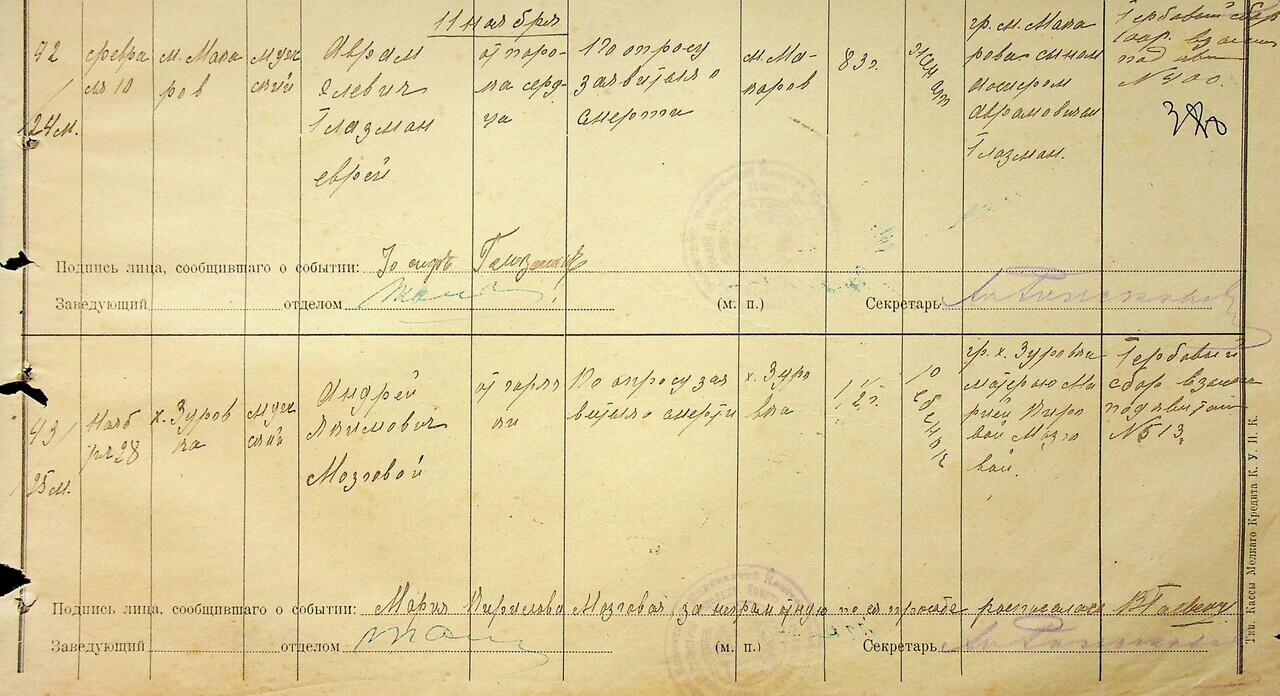 11 ноября
42
24 м.
февра
ля 10
м. Мака
ров
муж
ский
Аврам
Елевич
Глазман
еврей
от поро-
ка серд-
ца
По опросу
заявителя о
смерти
м. Ма-
каров
83 г.
женат
гр. м. Мака
рова сыном
Иосифом
Аврамовичем
Глазман.
Гербовый сбор
под квит
№ 400.
Подпись лица, сообщившего о событии:
Заведующий отделом (м. п.) Секретарь
43
25 м.
Нояб
ря 28
х. Зуров
ка
муж
ский
Андрей
Якимович
Мозговой
от горяч
ки
По опросу зая
вителя о смерти
х. Зуро
вка
1 1/2 г.
ребенок
гр. х. Зуровка
матерью Ма
рией Киро
вой Мозго
вой.
Гербовый
сбор взыскан
под квитан
№ 513.
Подпись лица, сообщившего о событии: Мария Кирилова Мозговая, за неграмотную по ея просьбе росписалася
Заведующий отделом (м. п.) Секретарь
Тип. Кассы Мелкаго Кредита К. У. И. К.